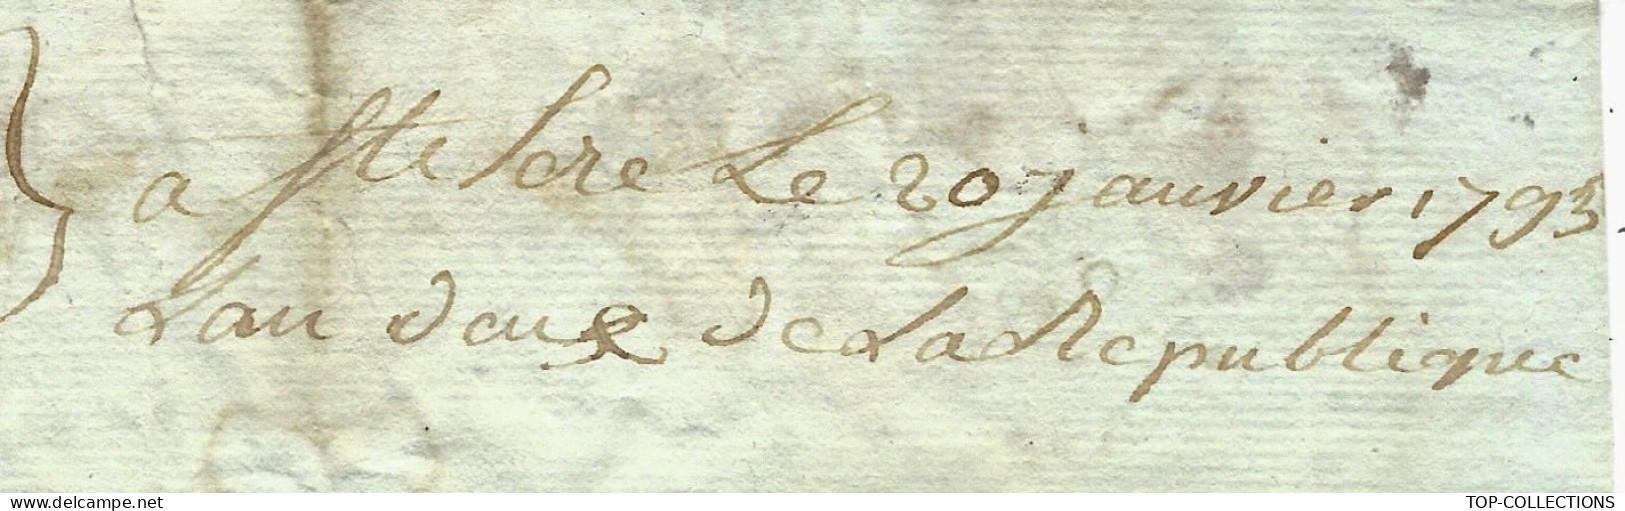 a Ste sere Le 20 janvier 1793
Lan deux de La Republique
www.delcampe.net
TOP-COLLECTIONS